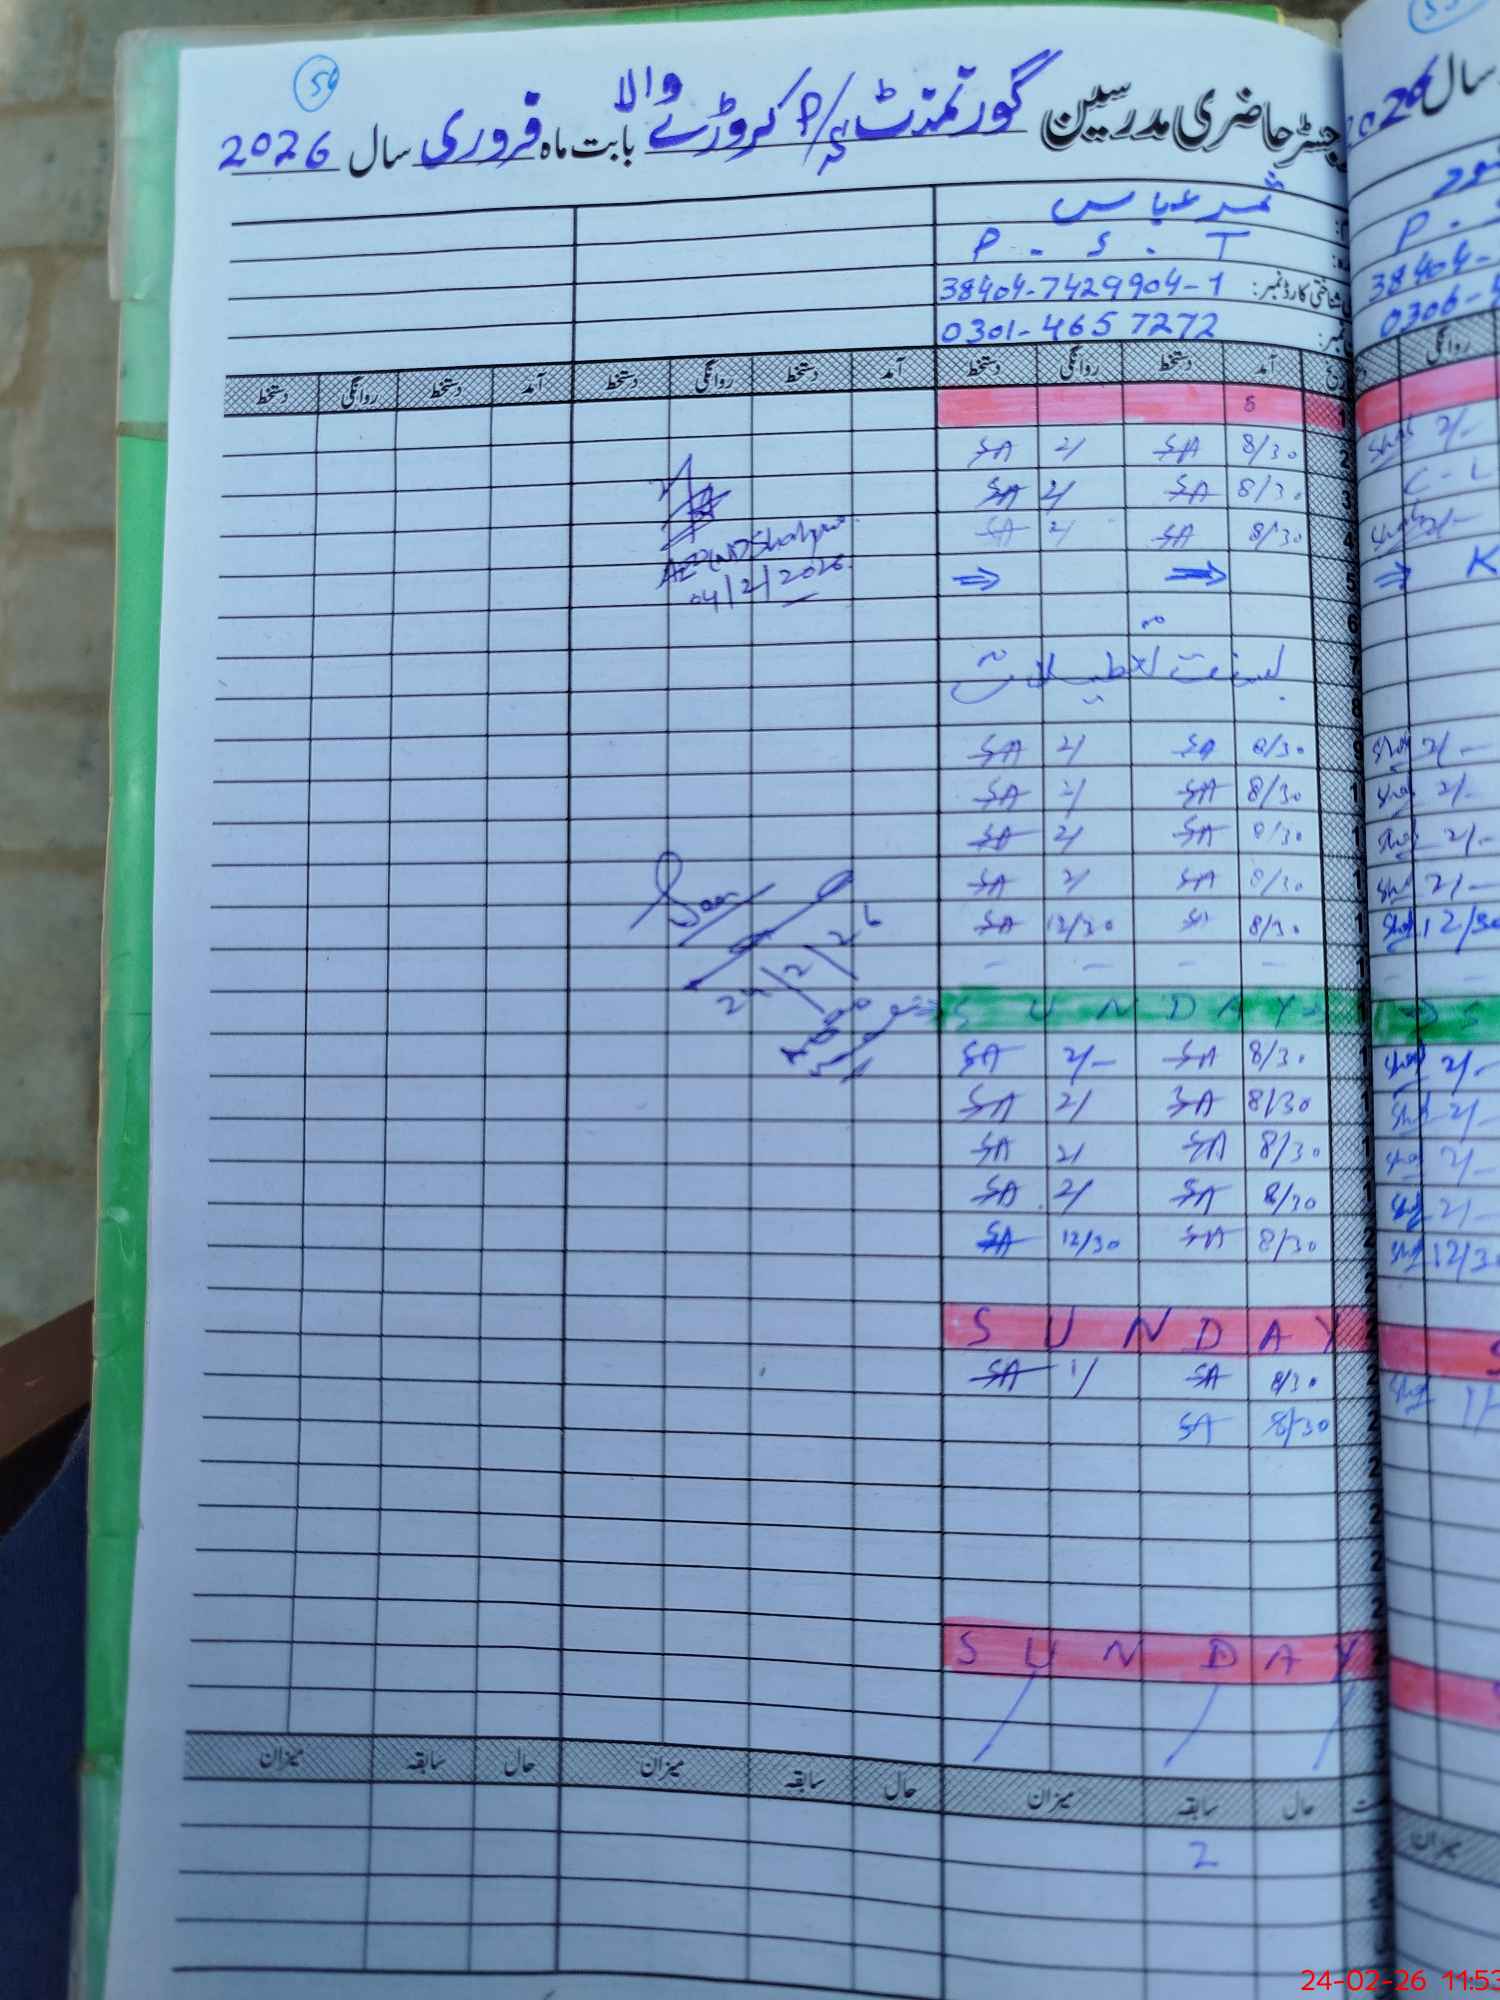 54
رجسٹر حاضری مدرسین گورنمنٹ P/ کروڑے والا بابت ماہ فروری سال 2026
ثمر عباس
P - S - T
شناختی کارڈ نمبر: 38404-7429904-1
نمبر: 0301-4657272
آمد دستخط روانگی دستخط آمد دستخط روانگی دستخط آمد دستخط روانگی دستخط
1 S
2 8/30 SA 2/ SA
3 8/30 SA 2/ SA
4 8/30 SA 2/ SA
5 ⇒ ⇒
6
7 تعطیلات
8
9 8/30 SA 2/ SA
1 8/30 SA 2/ SA
1 8/30 SA 2/ SA
1 8/30 SA 2/ SA
1 8/30 SA 12/30 SA
1 - - - -
1 SUNDAY
1 8/30 SA 2/- SA
1 8/30 SA 2/ SA
1 8/30 SA 2/ SA
1 8/30 SA 2/ SA
2 8/30 SA 12/30 SA
2
2 SUNDAY
2 8/30 SA 1/ SA
2 8/30 SA
2
2
2
2
SUNDAY
04/2/2026
24/2/26
حال سابقہ میزان حال سابقہ میزان حال سابقہ میزان
2
سال 2026
P -
38404-
0306-
روانگی
2/-
C - L
2/-
⇒ K
2/-
2/-
2/-
2/-
12/30
2/-
2/-
2/-
2/-
12/30
S
میزان
24-02-26 11:53